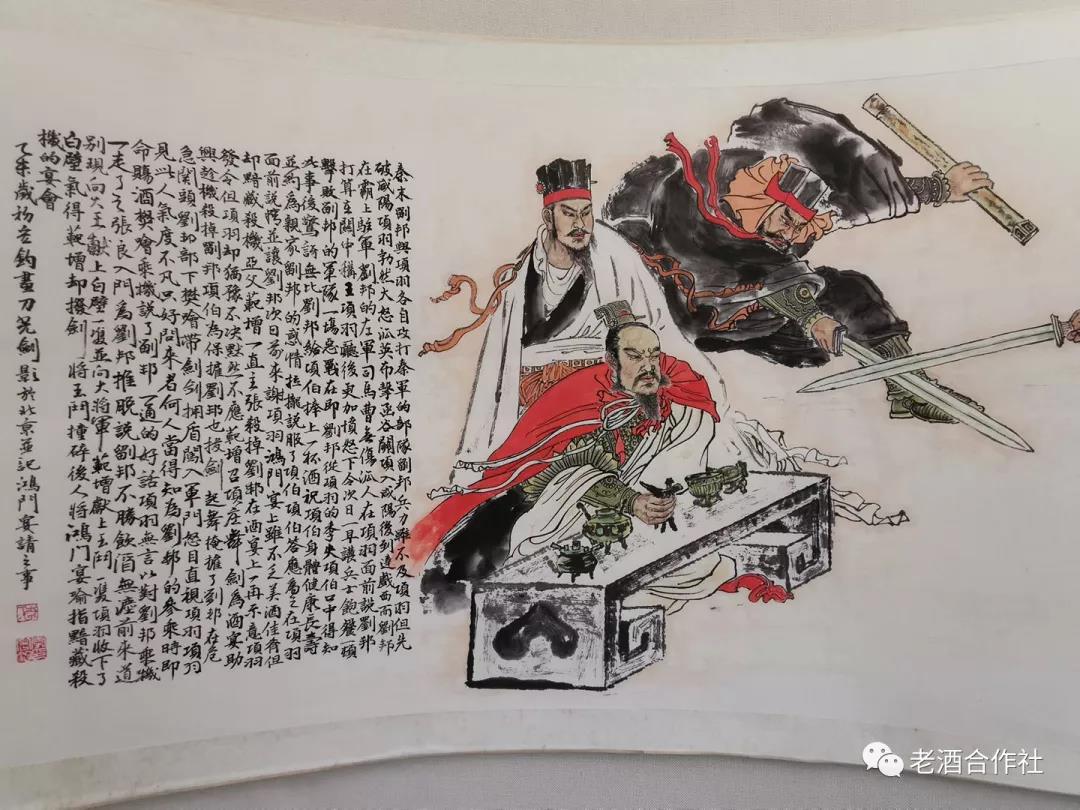 秦末劉邦與項羽各自攻打秦軍的部隊劉邦兵力雖不及項羽但先
破咸陽項羽勃然大怒派英布擊函谷關項入咸陽後到達戲西而劉邦
在霸上駐軍劉邦的左軍司馬曹無傷派人在項羽面前説劉邦
打算在關中稱王項羽聽後更加憤怒下令次日一早讓兵士飽餐頓
擊敗劉邦的軍隊一場惡戰在即劉邦從項羽的季央項伯口中得知
此事後驚訝無比劉邦給項伯捧上一杯酒祝項伯身體健康長壽
並約為親家劉邦的感情拉攏説服了項伯項伯答應為之在項羽
面前説情並讓劉邦次日前來謝項羽鴻門宴上雖不乏美酒佳肴但
却黯藏殺機亞父範增一直主張殺掉劉邦在酒宴上一再示意項羽
發令但項羽却猶豫不决默然不應範增召項庄舞劍為酒宴助
興趁機殺掉劉邦項伯為保擁劉邦也拔劍起舞掩護了劉邦在危
急関頭劉邦部下樊噲帶劍擁盾闖入軍門怒目直視項羽項羽
見此人氣度不凡只好問来者何人當得知為劉邦的参乘時即
命賜酒樊噲乘機説了劉邦一通的好話項羽無言以對劉邦乘機
一走了之張良入門為劉邦推脱説劉邦不勝飲酒無法前来道
别現向大王獻上白壁一雙並向大將軍範增獻上玉鬥一雙項羽收下了
白壁氣得範增却拔劍將玉鬥撞碎後人將鴻门宴喻指黯藏殺
機的宴會
乙未歲於北京並記鴻門宴請之事
老酒合作社